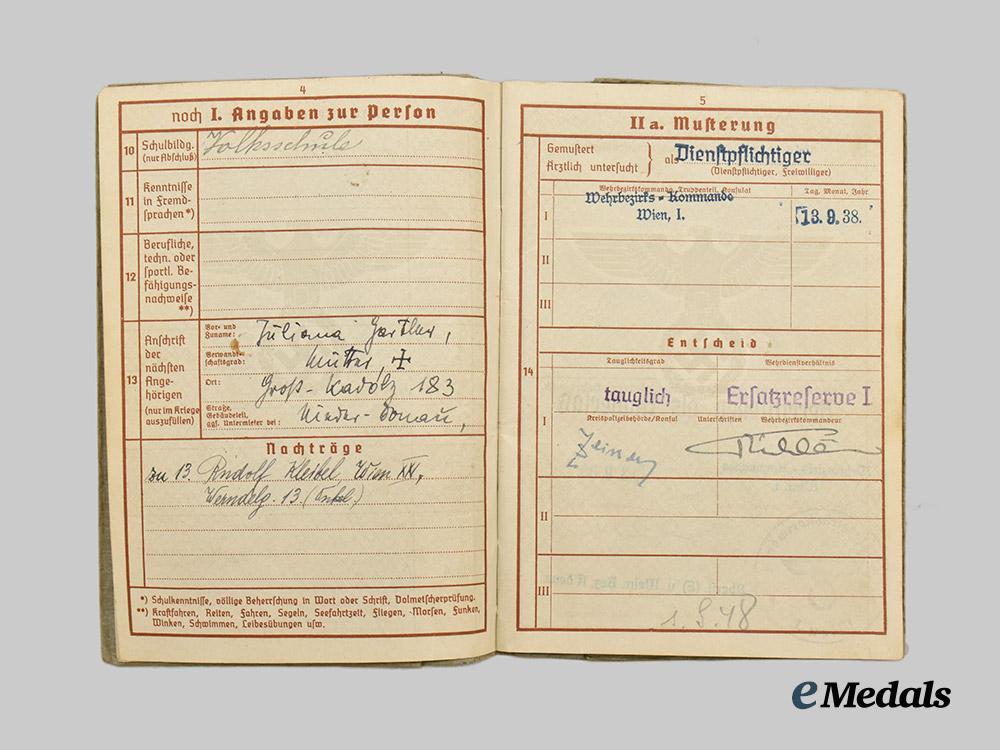 4
noch I. Angaben zur Person
10 Schulbildg. (nur Abschluß) Volksschule
11 Kenntnisse in Fremd-
sprachen*)
12 Berufliche,
techn. oder
sportl. Be-
fähigungs-
nachweise
**)
13 Anschrift
der
nächsten
Ange-
hörigen
(nur im Kriege
auszufüllen)
Vor- und
Zuname: Juliana Gartler,
Verwandt-
schaftsgrad: Mutter +
Ort: Groß-Kadolz 183
Straße,
Gebäudeteil,
ggf. Untermieter bei: Nieder-Donau,
Nachträge
zu 13. Rudolf Wien XX,
13 (Onkel)
*) Schulkenntnisse, völlige Beherrschung in Wort oder Schrift, Dolmetscherprüfung.
**) Kraftfahren, Reiten, Fahren, Segeln, Seefahrtzeit, Fliegen, Morsen, Funken,
Winken, Schwimmen, Leibesübungen usw.
5
II a. Musterung
Gemustert
Ärztlich untersucht } als Dienstpflichtiger
(Dienstpflichtiger, Freiwilliger)
Wehrbezirkskommando, Truppenteil, Konsulat Tag, Monat, Jahr
I Wehrbezirks-Kommando
Wien, I. 13. 9. 38.
II
III
Entscheid
14
Tauglichkeitsgrad Wehrdienstverhältnis
I tauglich Ersatzreserve I
Kreispolizeibehörde/Konsul Unterschriften Wehrbezirkskommandeur
II
III
1. 9. 48
eMedals